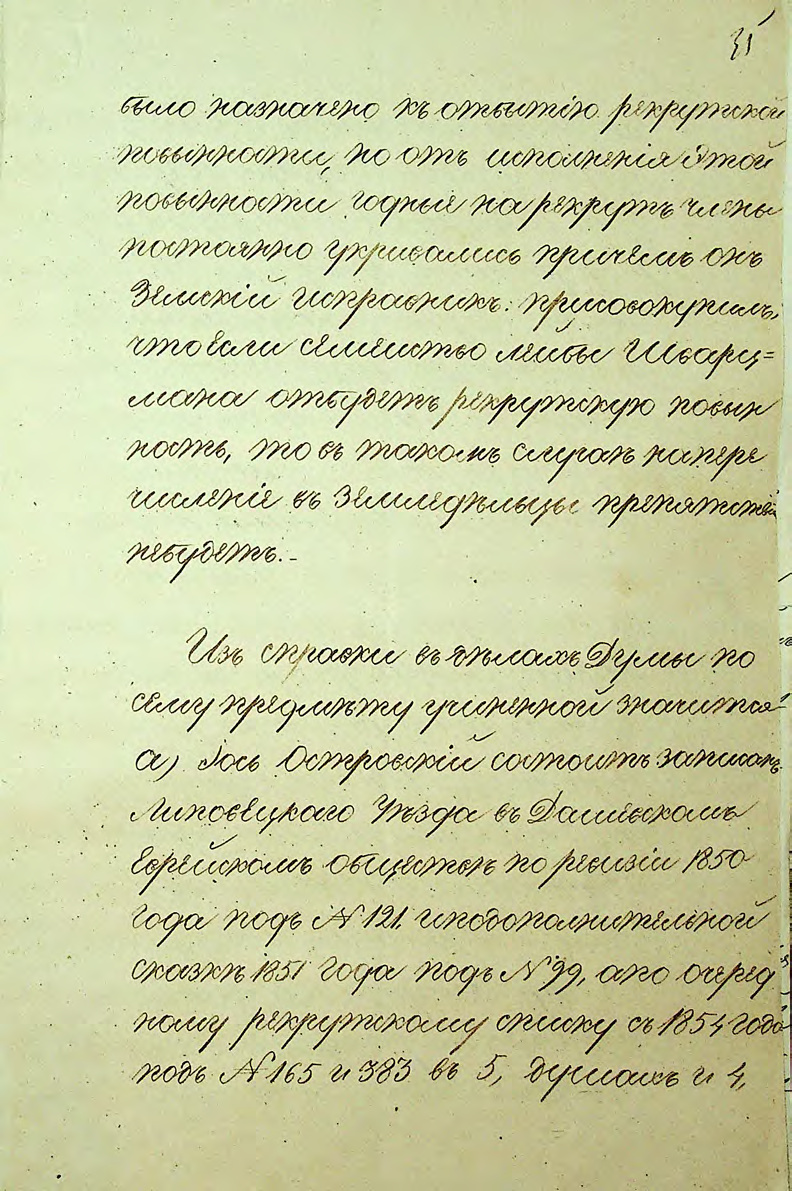 35
было назначено къ отбытію рекрутской
повынности, но отъ исполненія этой
повынности годные на рекрутъ члены
постоянно укривались причемъ онъ
Земскій Исправникъ присовокупилъ,
что если семейство Лейбы Шварц=
мана отбудетъ рекрутскую повын
ность, то въ такомъ случаѣ на пере
численіе въ Земледѣльцы препятствій
небудетъ.-
Изъ справки въ дѣлахъ Думы по
сему предмѣту учиненной значится
а) Іось Островскій состоитъ записанъ
Липовецкого Уѣзда въ Дашевскомъ
Еврейскомъ обществѣ по ревизіи 1850
года подъ N 121. и подополнительной
сказкѣ 1851 года подъ N 99, а по очеред
ному рекрутскому списку съ 1854 года
подъ N 165 и 383 въ 5, душахъ и 4,